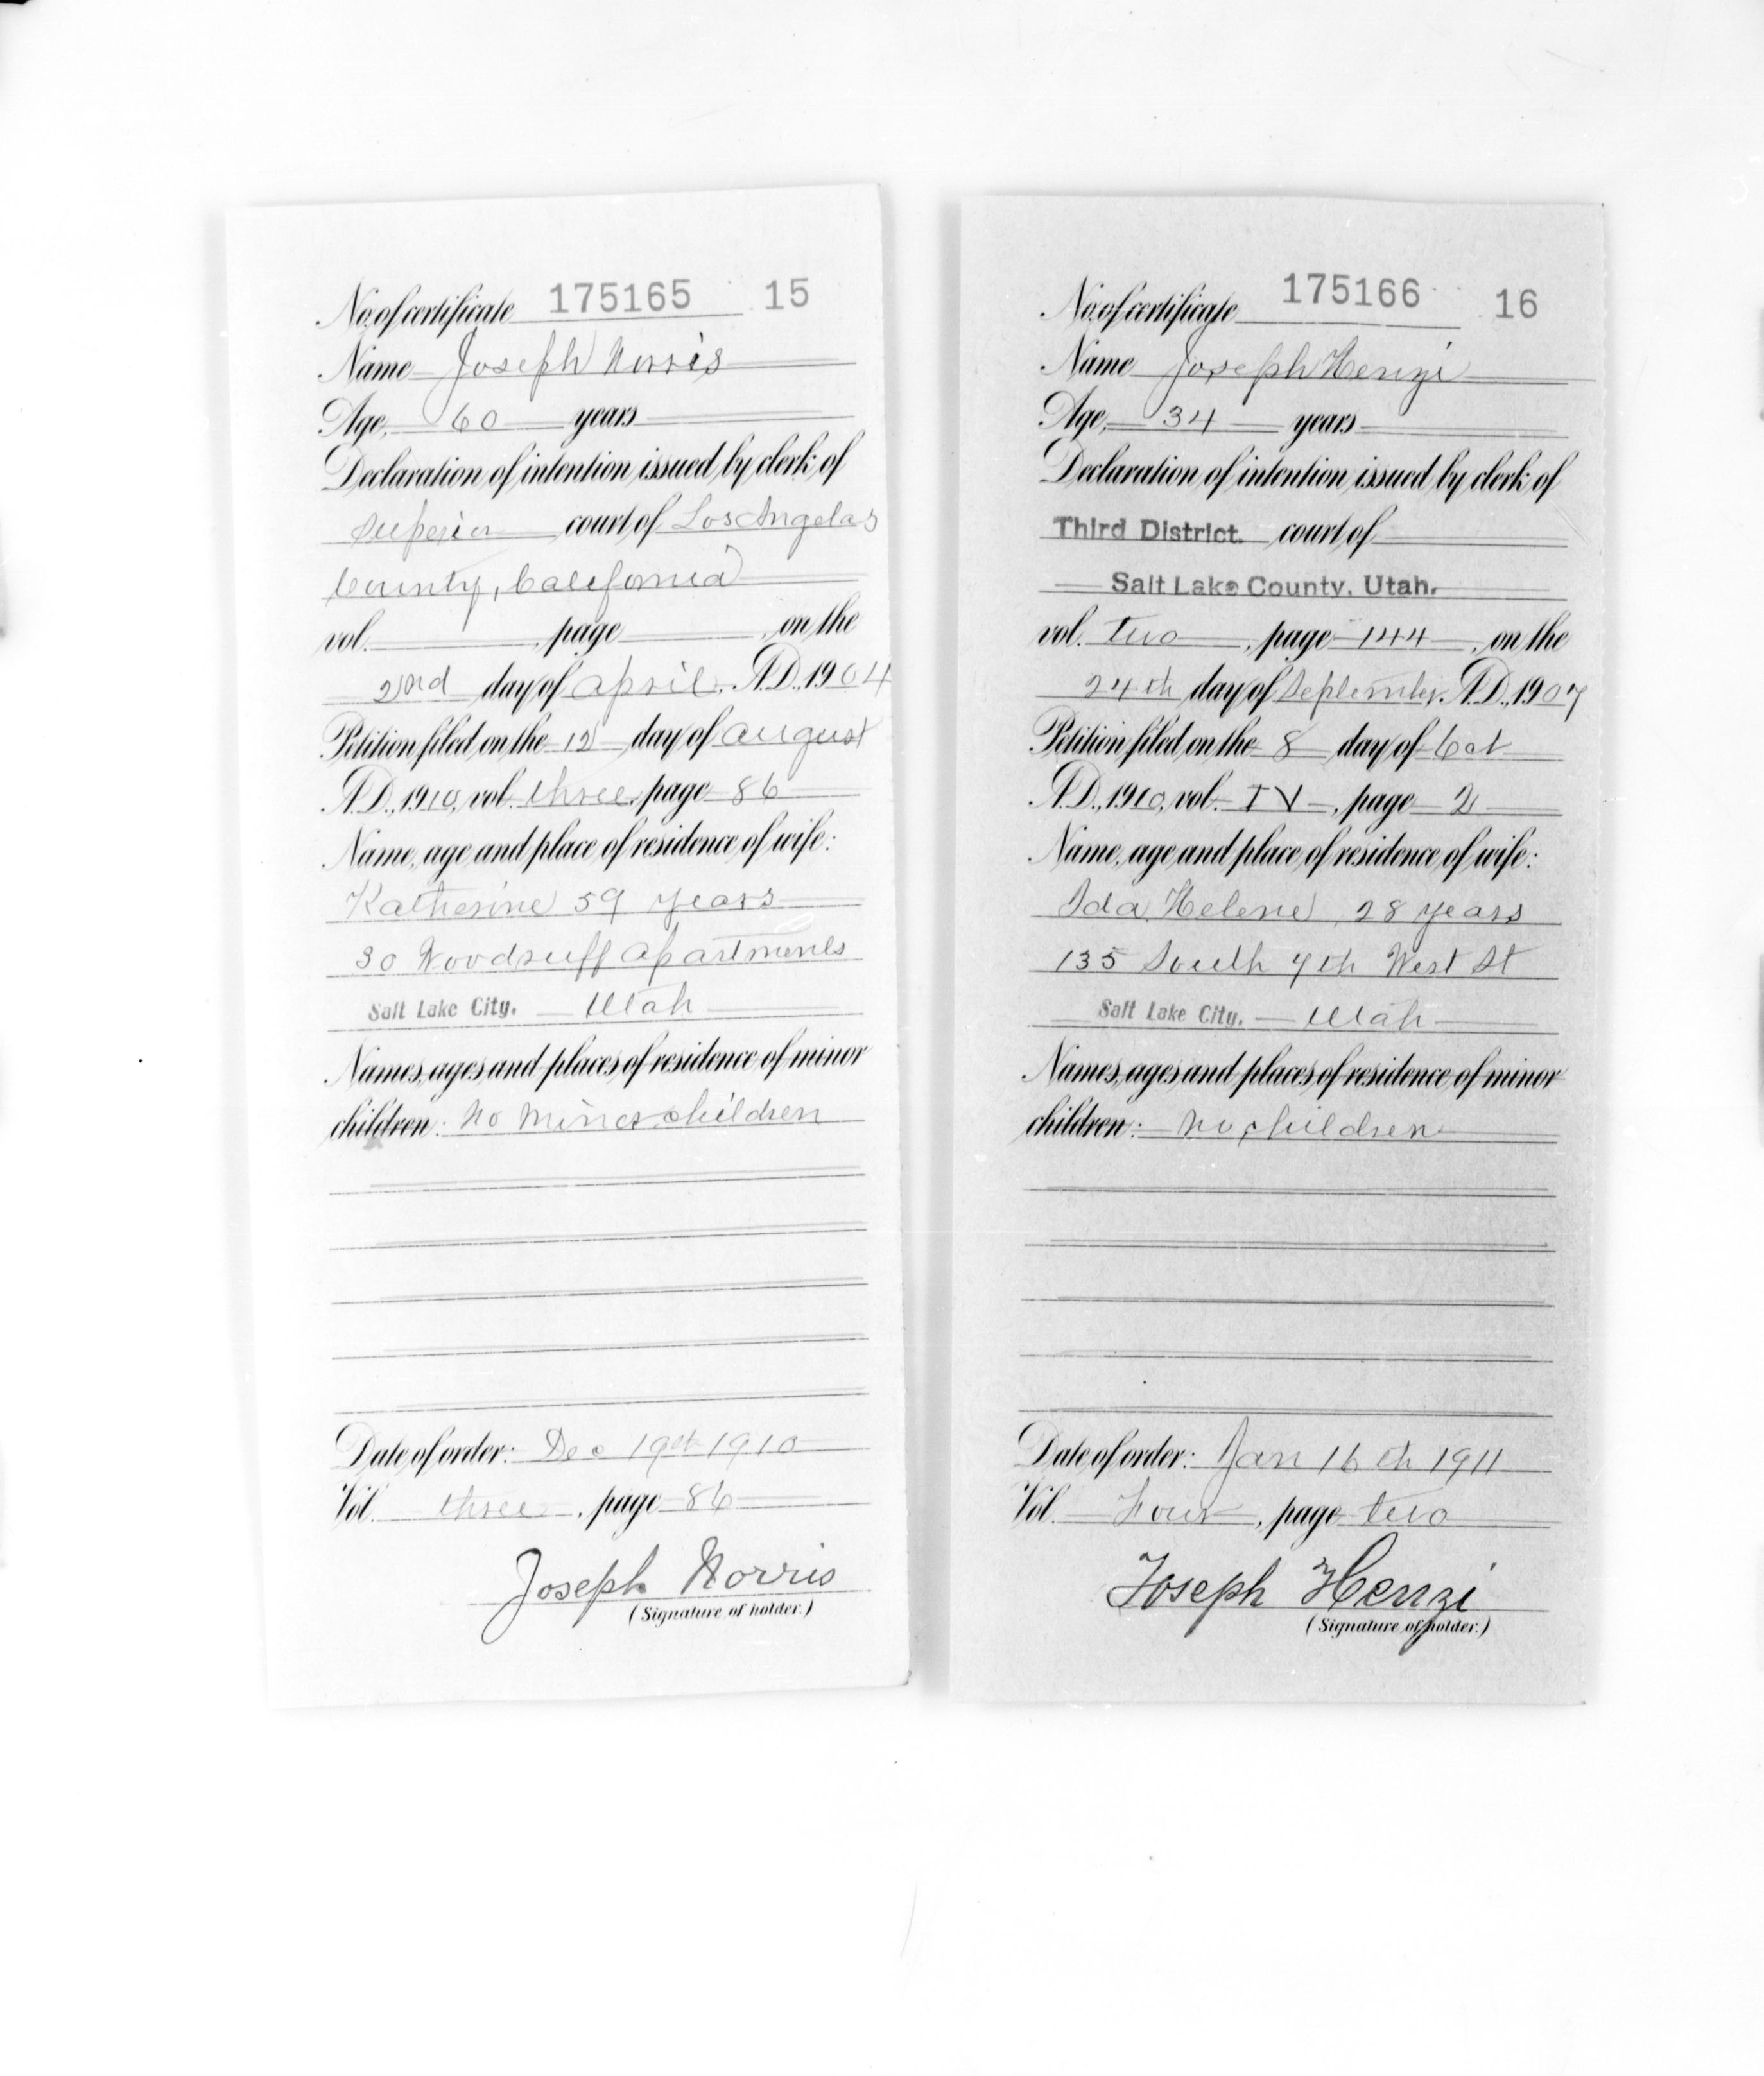 No. of certificate 175165 15
Name Joseph Norris
Age, 60 years
Declaration of intention issued by clerk of
Superior court of Los Angelas
County, California
vol. , page , on the
22nd day of April, A.D., 1904
Petition filed on the 12 day of August
A.D., 1910, vol. three, page 86
Name, age and place of residence of wife:
Katherine 59 years
30 Woodruff Apartments
Salt Lake City, Utah
Names, ages and places of residence of minor
children: No Minor children
Date of order: Dec 19th 1910
Vol. three, page 86
Joseph Norris
(Signature of holder.)
No. of certificate 175166 16
Name Joseph Henzi
Age, 34 years
Declaration of intention issued by clerk of
Third District. court of
Salt Lake County, Utah.
vol. Two, page 144, on the
24th day of September, A.D., 1907
Petition filed on the 8 day of Oct
A.D., 1910, vol. IV, page 2
Name, age and place of residence of wife:
Ida Helene, 28 years
135 South 7th West St
Salt Lake City, Utah
Names, ages and places of residence of minor
children: No children
Date of order: Jan 16th 1911
Vol. Four, page two
Joseph Henzi
(Signature of holder.)